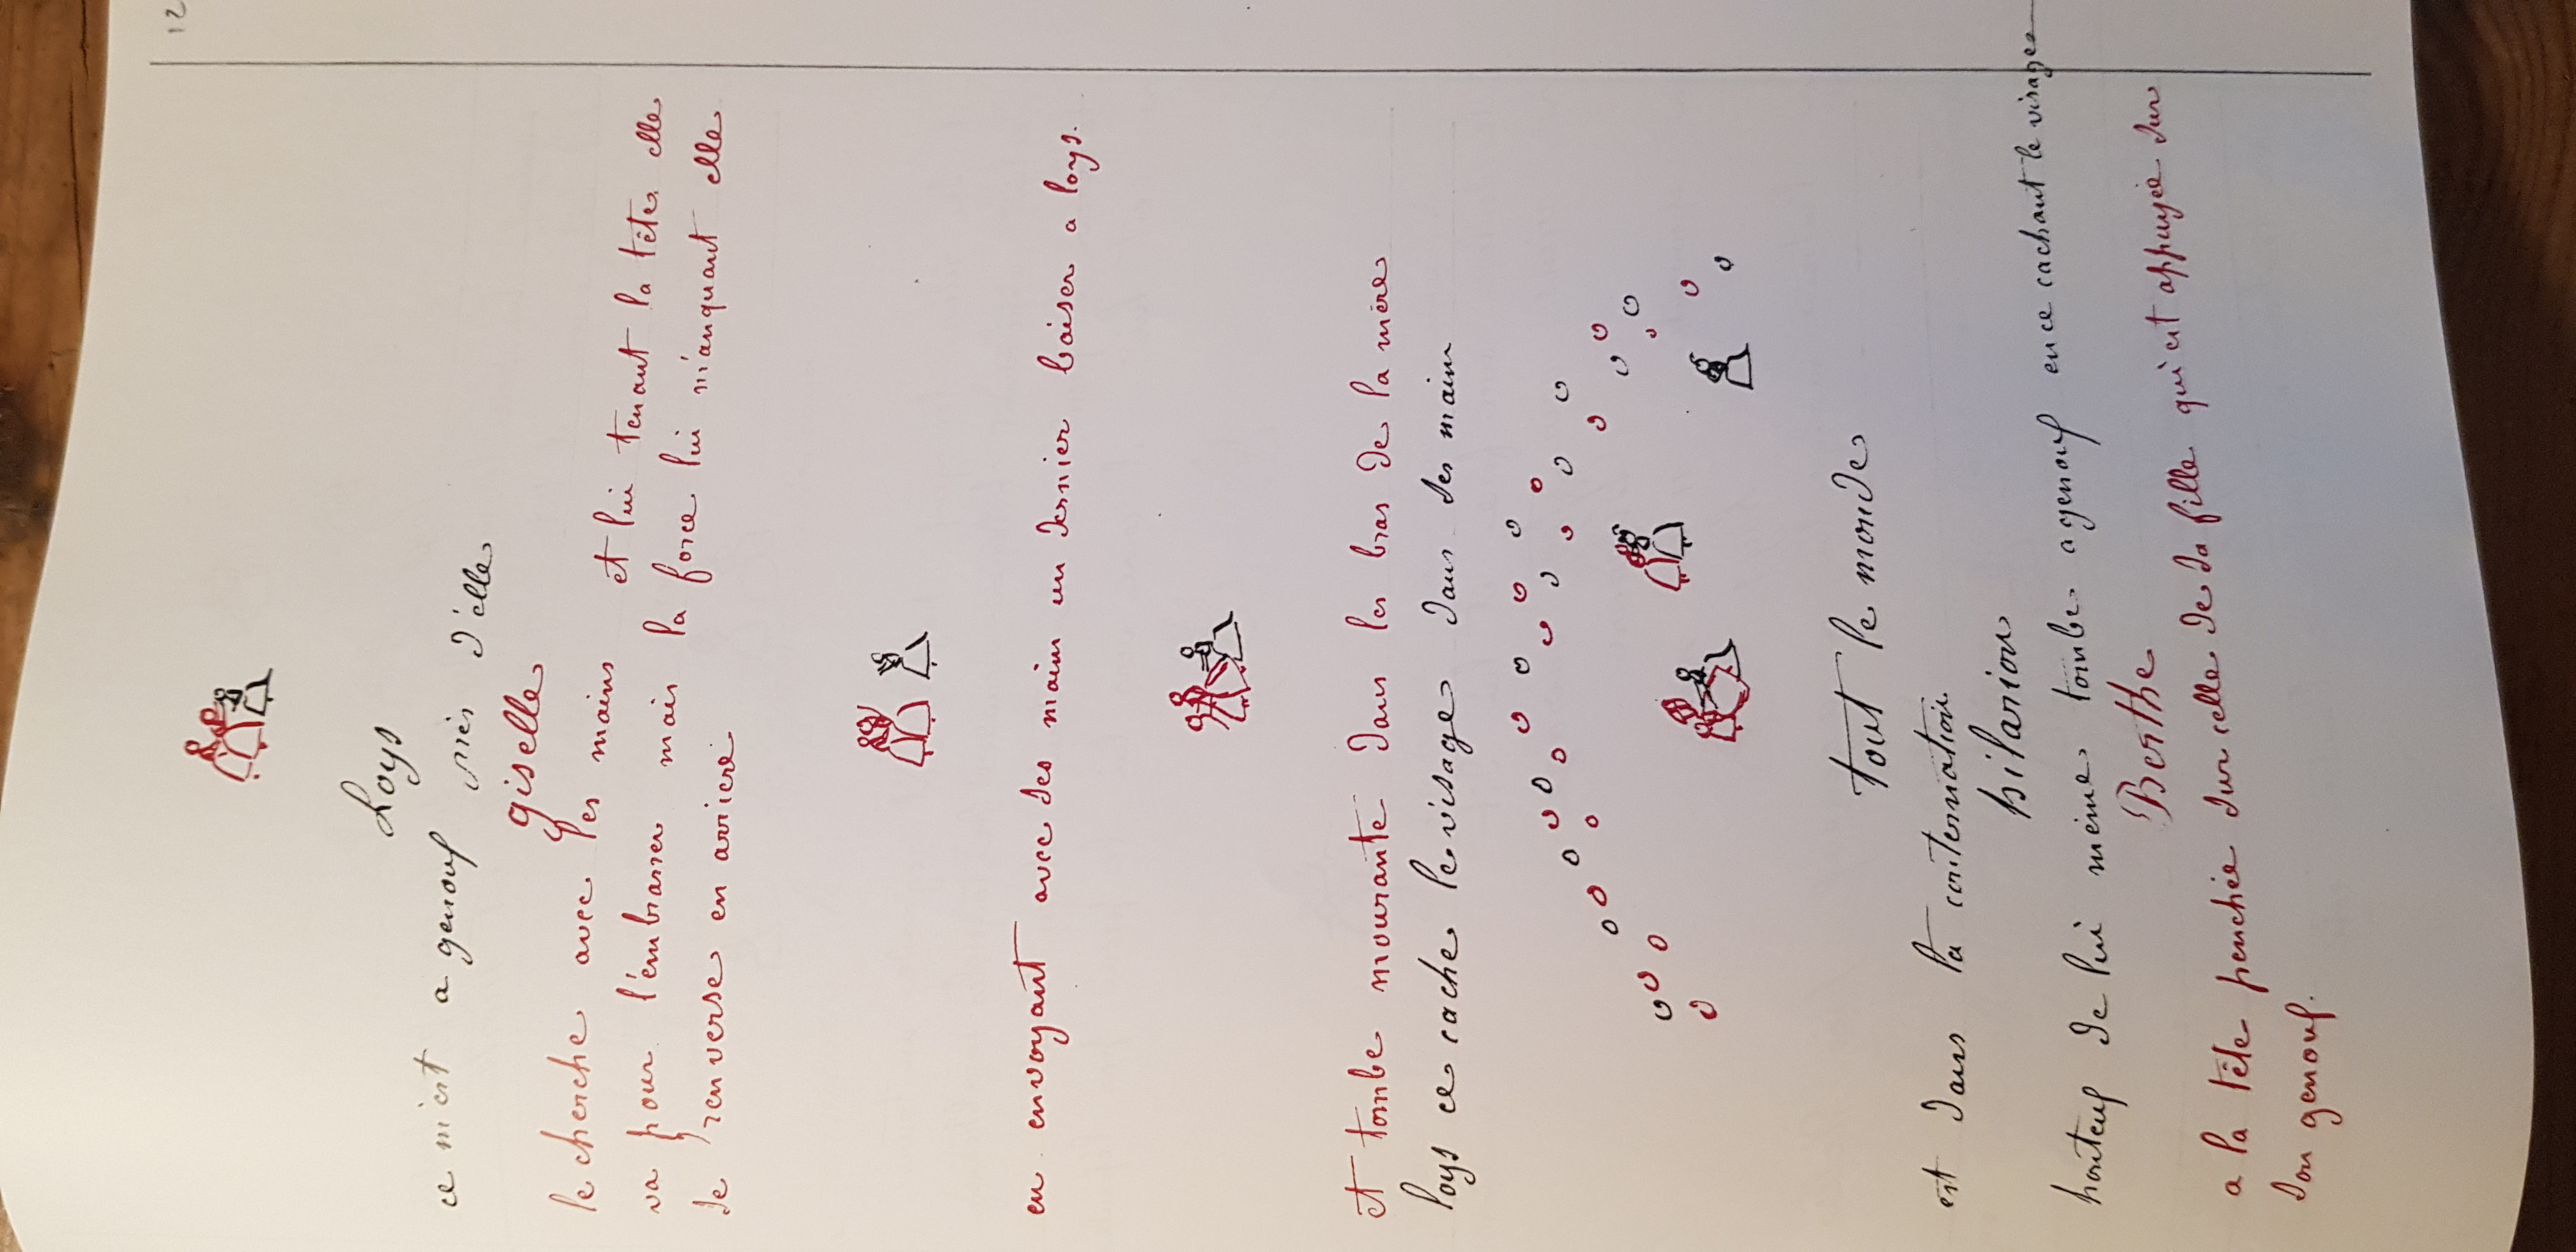 12
Loys
ce m'est a genouf près d'elle
giselle
le cherche avec les mains et lui tenant la tête elle
va pour l'embrasser mais la force lui manquant elle
se renverse en arriere
en envoyant avec ses main un dernier baiser a loys.
et tombe mourante dans les bras de la mère
loys ce cache le visage dans ses main
tout le monde
est dans la consternation
hilarion
honteuf de lui même tombe a genouf en ce cachant le visage
Berthe
a la tête penchée sur celle de sa fille qui est appuyée sur
son genouf.